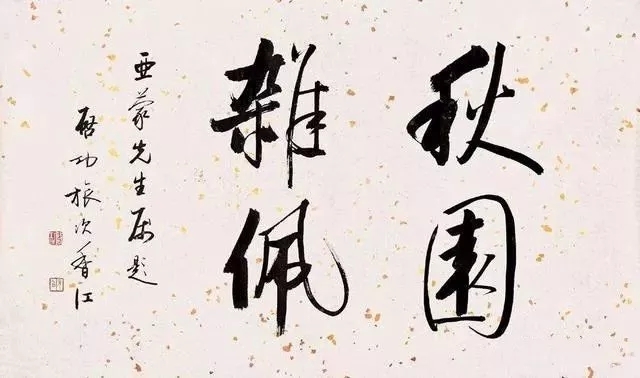 秋園
雜佩
亞蒙先生屬題
啟功旅次香江